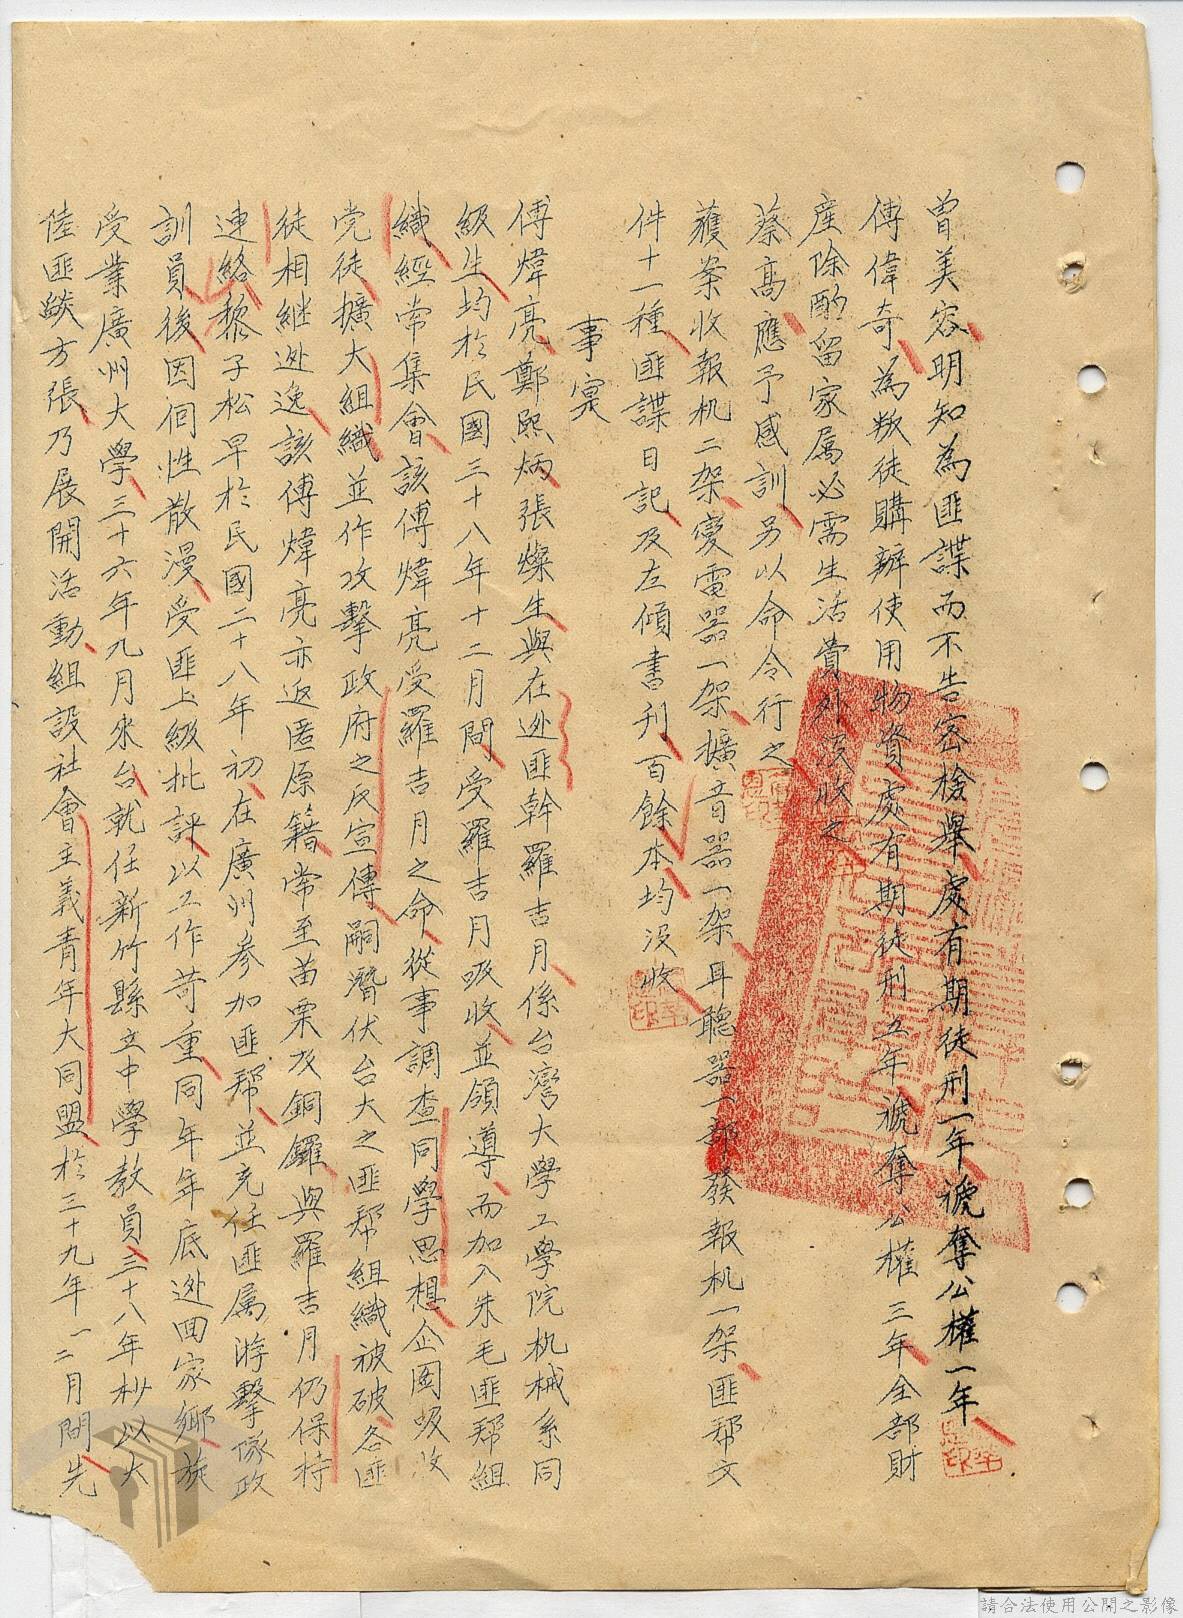 曾美容明知為匪諜而不告密檢舉處有期徒刑一年褫奪公權一年
傅偉奇為叛徒購辦使用物資處有期徒刑五年褫奪公權三年全部財
產除酌留家属必需生活費外沒收之
蔡高應予感訓另以命令行之
獲案收報机二架變電器一架擴音器一架耳聽器一部發報机一架匪帮文
件十一種匪諜日記及左傾書刊百餘本均沒收
事實
傅煒亮鄭熙炳張燦生與在逃匪幹羅吉月係台灣大學工學院机械系同
級生均於民國三十八年十二月間受羅吉月吸收並領導而加入朱毛匪帮組
織經常集會該傅煒亮受羅吉月之命從事調查同學思想企圖吸收
党徒擴大組織並作攻擊政府之反宣傳嗣潛伏台大之匪帮組織被破各匪
徒相継逃逸該傅煒亮亦返匿原籍常至苗栗及銅鑼與羅吉月仍保持
連絡黎子松早於民國二十八年初在廣州参加匪帮並充任匪属游擊隊政
訓員後因個性散漫受匪上級批評以工作苛重同年年底逃回家鄉旋
受業廣州大學三十六年九月來台就任新竹縣立中學教員三十八年杪以大
陸匪燄方張乃展開活動組設社會主義青年大同盟於三十九年一二月間先
請合法使用公開之影像